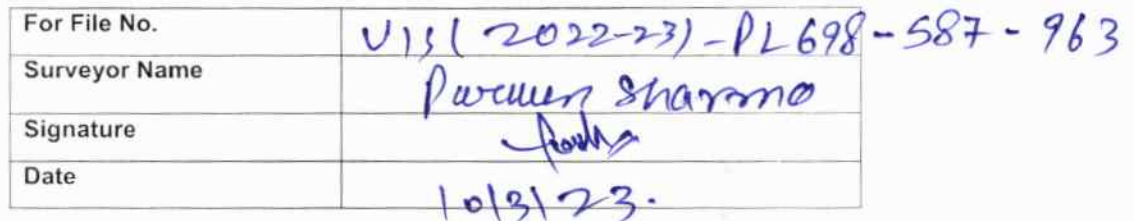 For File No. VIS(2022-23)-PL698-587-963
Surveyor Name Sharma
Signature
Date 10/3/23.